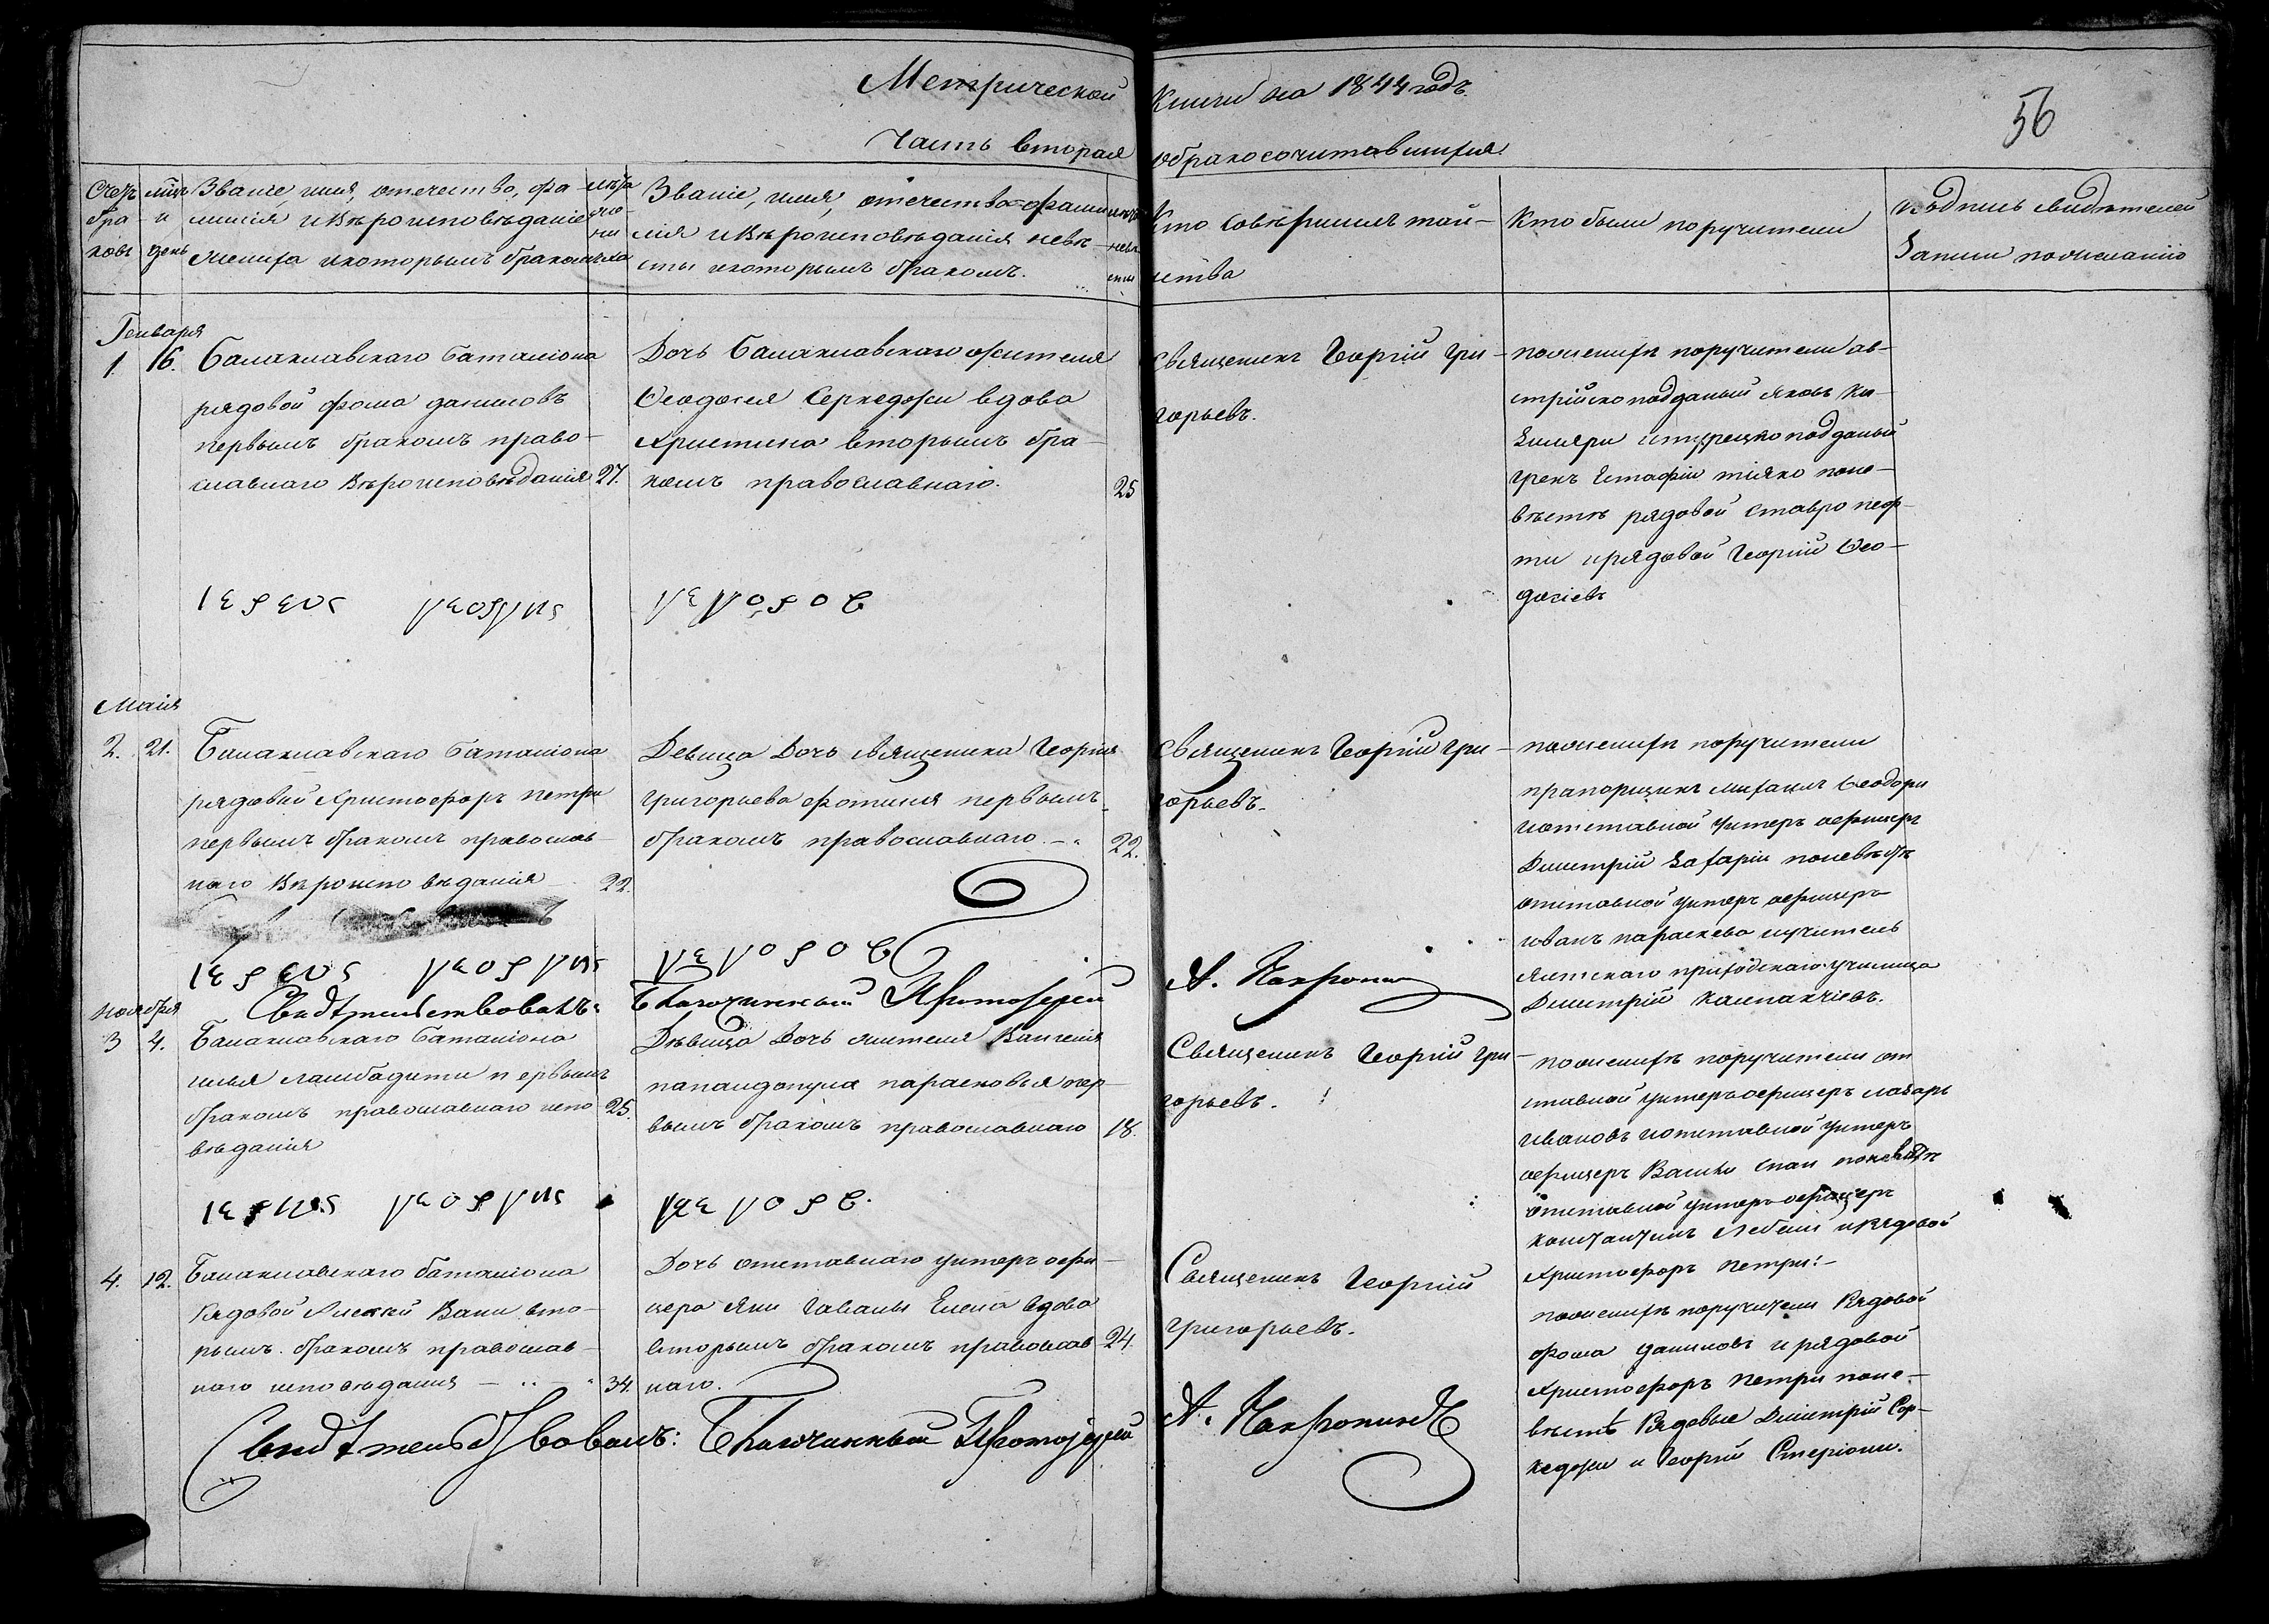 Метрической книги на 1844 годъ.
56
Часть вторая о бракосочитавшихся
Счетъ браковъ
мѣсяцъ и день
Званіе, имя, отечество, фа-
милія и вѣроисповѣданіе
жениха и которымъ бракомъ
лѣта жениха
Званіе, имя, отечество фами-
лія и вѣроисповѣданія невѣ-
сты и которымъ бракомъ.
лѣта невѣсты
Кто совѣршилъ таи-
нства
Кто были поручители
подпись свидѣтелей
записи по желанію
Генваря
1. 16.
Балаклавскаго баталіона
рядовой фома даниловъ
первымъ бракомъ право-
славнаго вѣроисповѣданія 27.
Дочь балаклавскаго жителя
Ѳеодосея Серкеджи вдова
христина вторымъ бра-
комъ православнаго. 25
священикъ Георгій гри-
горьевъ.
по женихѣ поручители ав-
стрійскоподданый яковъ Ки-
зиляри и турецкоподданый
грекъ Естафіи тіяко по не-
вѣстѣ рядовой ставро пеф-
ти и рядовой Георгій Ѳео-
досіевъ
ιερευς γεοργης γεγοροβ
Маія
2. 21.
Балаклавскаго баталіона
рядовый Христофоръ петри
первымъ бракомъ православ-
наго вѣроисповѣданія 22.
Девица Дочь священика Георгія
григорьева фотиния первымъ
бракомъ православнаго 22.
священикъ Георгій гри-
горьевъ.
по женихѣ поручители
прапорщикъ михаилъ Ѳеодори
и отставной унтеръ афицеръ
Дмитрій Захаріи по невѣстѣ
отставной унтеръ афицеръ
иванъ параскева и учитель
ялтскаго приходскаго училища
Дмитрій калпакчіевъ.
ιερευς γεοργης γεγοροβ
Свидѣтельствовалъ: Благочинный Протоіерей А.
Ноября
3 4.
Балаклавскаго баталіона
илья ламбадити первымъ
бракомъ православнаго испо 25.
вѣданія
Дѣвица Дочь жителя Вангелия
папандопула парасковья пер-
вымъ бракомъ православнаго 18.
Священикъ Георгій гри-
горьевъ.
по женихѣ поручители от
ставной унтеръ афицеръ лазарь
ивановъ и отставной унтеръ
афицеръ Васили спаи по невѣстѣ
отставной унтеръ афицеръ
константинъ Лебеши и рядовой
Христофоръ Петри:-
ιερης γεοργης γεγορβ.
4. 12.
Балаклавскаго баталіона
Рядовой Алексѣй Вани вто-
рымъ бракомъ православ-
наго исповѣданія 34.
Дочь отставнаго унтеръ афи-
цера Яни гаваны Елена вдова
вторымъ бракомъ православ 24.
наго.
Священикъ Георгій
григорьевъ.
по женихѣ поручители Рядовой
фома даниловъ и рядовой
Христофоръ Петри по не-
вѣстѣ Рядовые Димитрій Сер-
кеджи и Георгій Стеріони.
Свидѣтельствовалъ: Благочинный Протоіерей А.